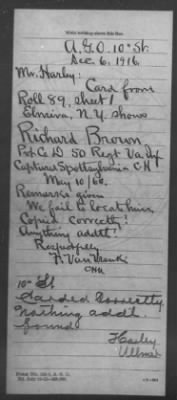 Write nothing above this line.
A.G.O. 10th St.
Dec. 6, 1916.
Mr. Harley:
Card from
Roll 89, sheet 1
Elmira, N.Y. shows
Richard Brown
Pvt. Co D 50 Regt Va. Inf
Captured Spottsylvania C H
May 10/64.
Remarks given
We fail to locate him
Copied correctly?
Anything addtl?
Respectfully
10th St
Carded correctly
nothing addtl.
found
Harley